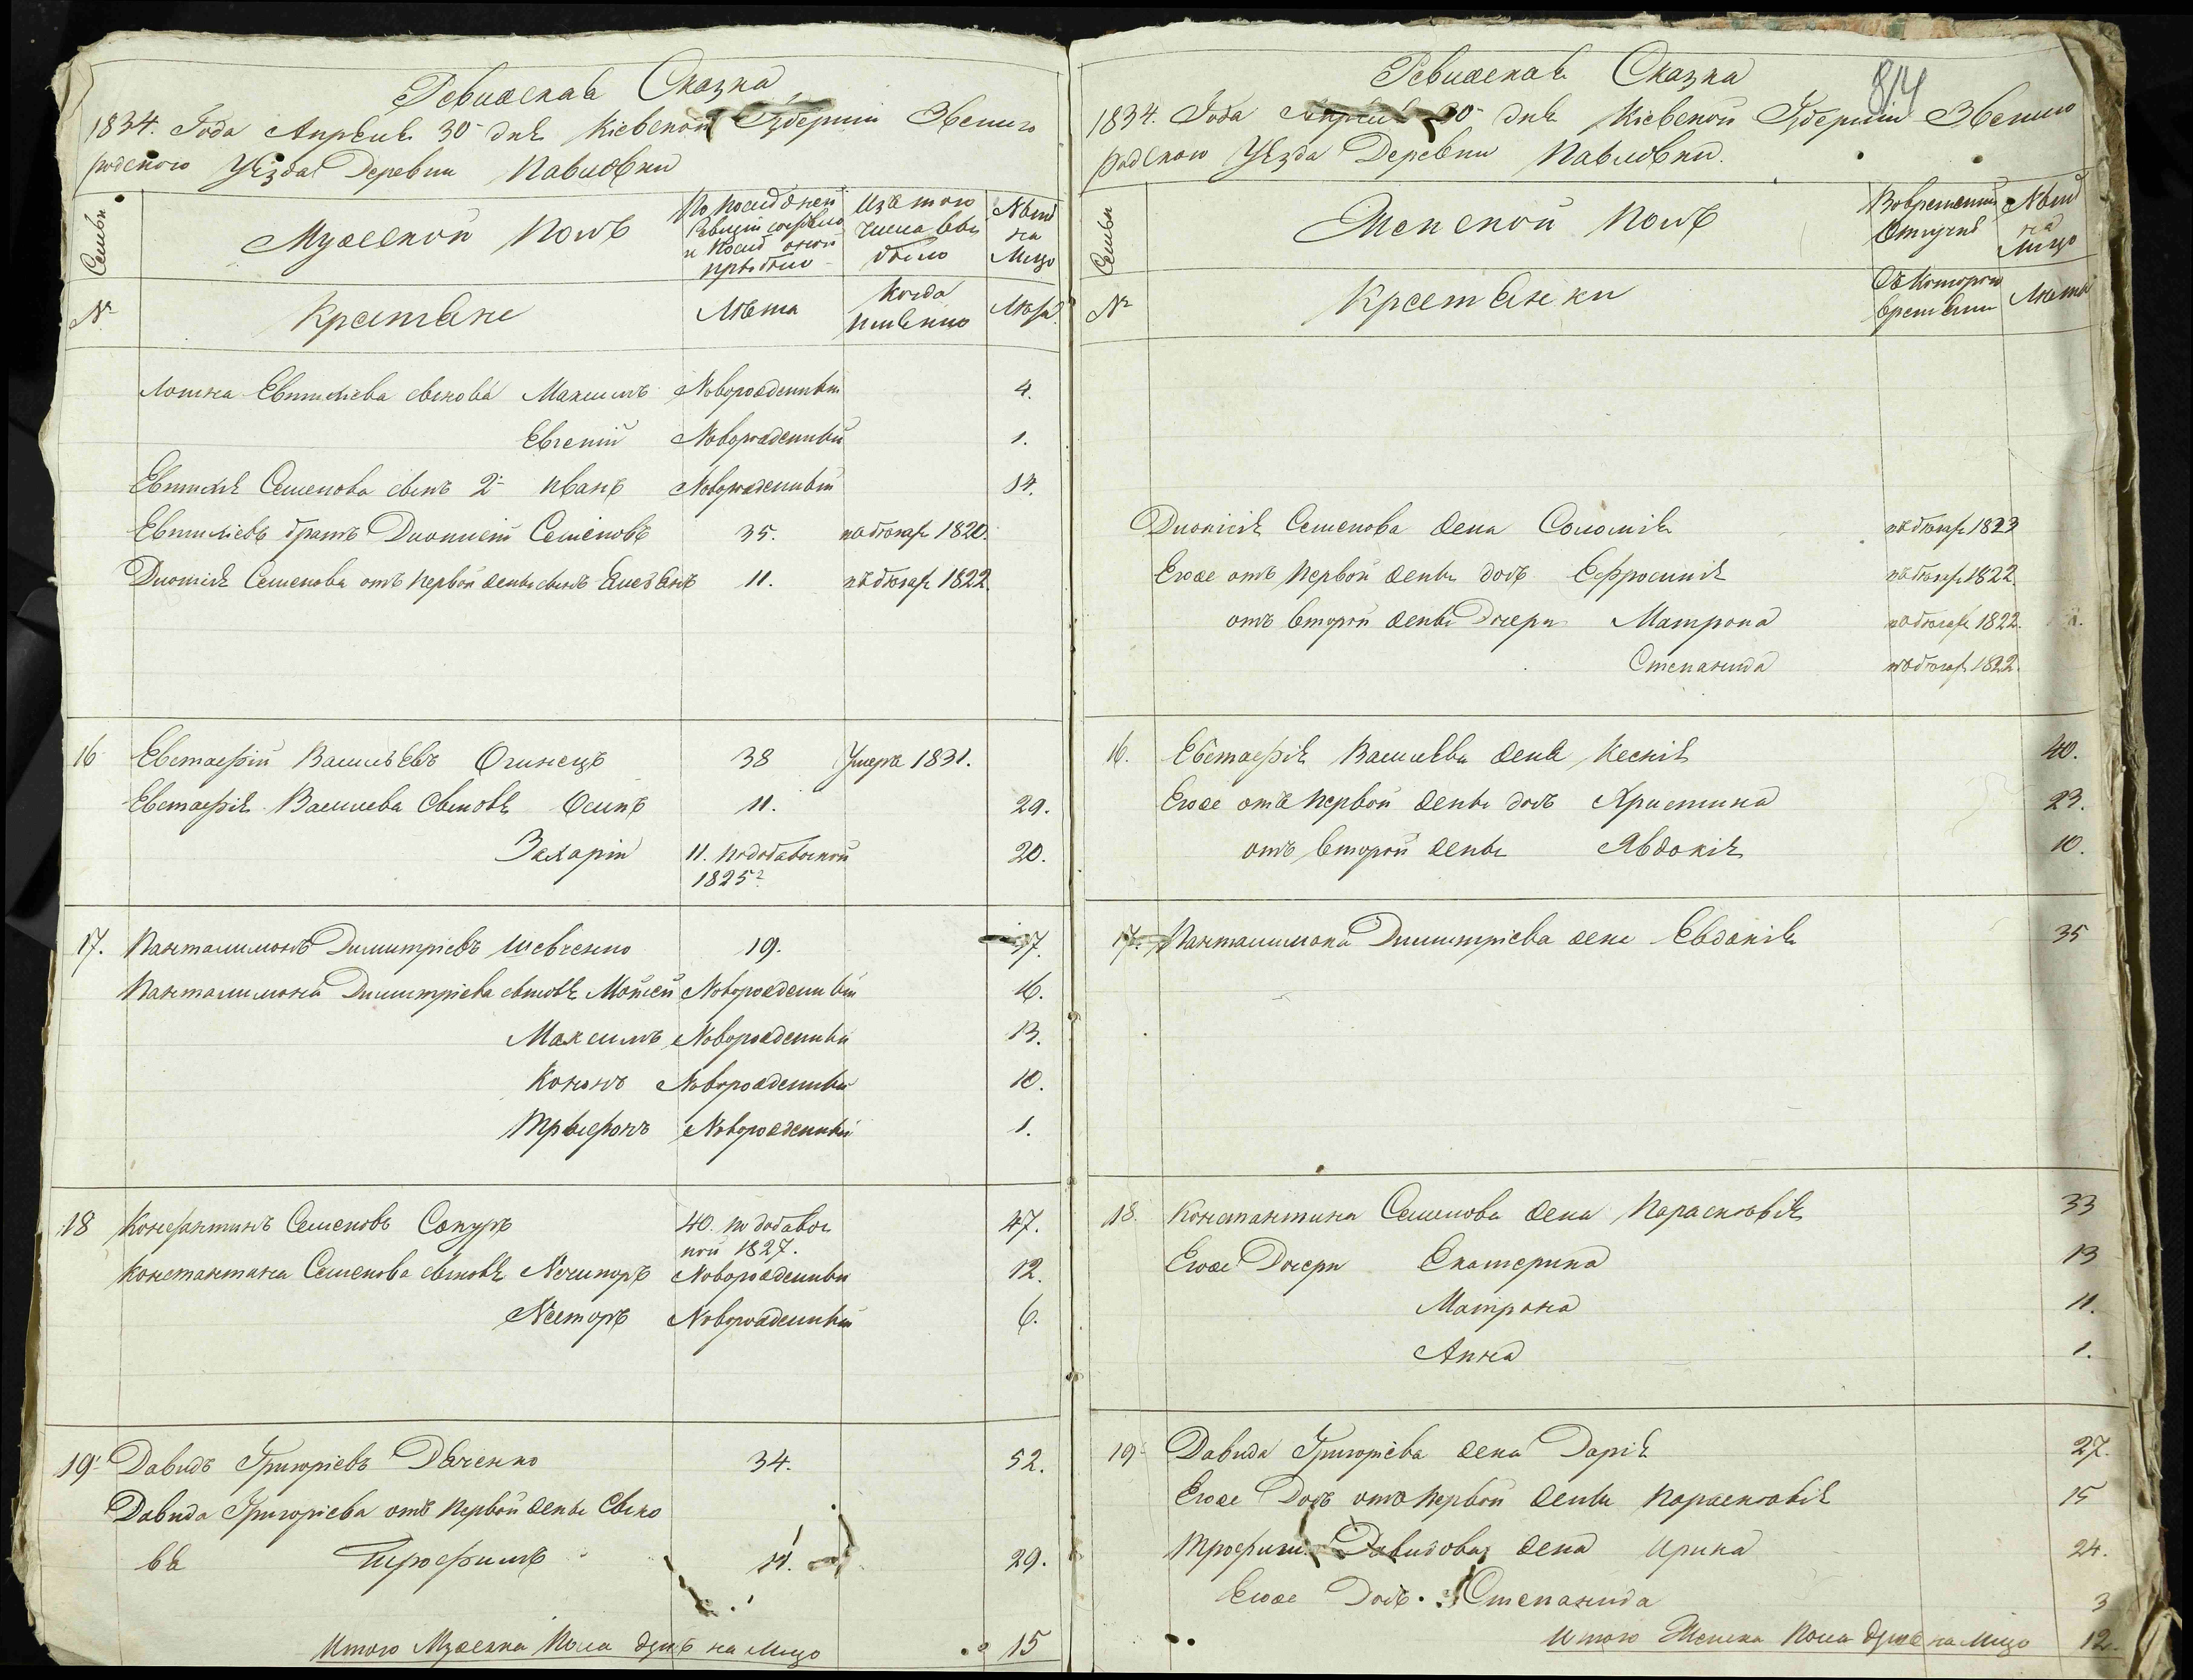 Ревижская Сказка
1834. Года Апреля 30 дня Кіевской Губерніи Звениго
родского Уезда Деревни Павловки
Семьи
Мужеской Полъ
По последней ревизіи состояло и после оной прибыло
Изъ того числа выбыло
Ныне на Лицо
№
Крестьяне
Лѣта
Когда именно
Лѣта
Евтихіева сынова Максимъ Новорожденный 4.
Евгеній Новорожденный 1.
Евтихія Семенова сынъ 2й Иванъ Новорожденный 14.
Евтихіевъ братъ Діонисій Семеновъ 35. 1820.
Діонисія Семенова отъ первой жены сынъ 11. 1822.
16 Евстафій Васильевъ Огинецъ 38 Умеръ 1831.
Евстафія Васильева сыновья Осипъ 11. 29.
Захарій 11. по добавочной 20.
1825г
17. Панталимонъ Димитріевъ Шевченко 19. 37.
Панталимона Димитріева сыновья Мойсей Новорожденный 16.
Максимъ Новорожденный 13.
Кононъ Новорожденный 10.
Трыфонъ Новорожденный 1.
18 Константинъ Семеновъ Сопуръ 40. по добавоч 47.
ной 1827.
Константина Семенова сыновья Нечипоръ Новорожденный 12.
Несторъ Новорожденный 6.
19. Давидъ Григоріевъ Дяченко 34. 52.
Давида Григоріева отъ первой жены Сыно
вья Трофимъ 11. 29.
Итого Мужеска Пола душъ на Лицо 15
814
Ревижская Сказка
1834. Года Апреля 30 дня Кіевской Губерніи Звениго
родского Уезда Деревни Павловки.
Семьи
Женской Полъ
Вовременной отлучке
Ныне на Лицо
№
Крестьянки
Съ Которого времени
Лѣта
Діонисія Семенова жена Соломія 1823
Егоже отъ первой жены дочь Ефросинія 1822
отъ второй жены Дочери Матрона 1822.
Степанида 1822.
16. Евстафія Васильева жена Ксенія 40.
Егоже отъ первой жены дочь Христина 23.
отъ второй жены Явдокія 10.
17. Панталимона Димитріева жена Евдокія 35
18. Константина Семенова жена Парасковія 33
Егоже Дочери Екатерина 13
Матрона 11.
Анна 1.
19 Давида Григоріева жена Дарія 27.
Егоже Дочь отъ первой жены Парасковія 15
Трофима Давидова жена Ирина 24.
Егоже Дочь Степанида 3
Итого Женска Пола душъ на Лицо 12.